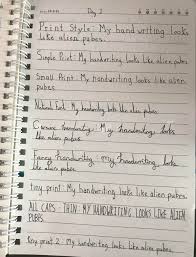 Day 2
Print Style: My handwriting looks
like alien pubes.
Simple Print: My handwriting looks like alien pubes.
Small Print: My handwriting looks like alien
pubes.
Font: My handwriting looks like alien pubes.
Cursive handwriting: My handwriting looks
like alien pubes.
Fancy handwriting: My handwriting looks
like alien pubes.
tiny print: My handwriting looks like alien pubes.
ALL CAPS - THIN: MY HANDWRITING LOOKS LIKE ALIEN
PUBES
tiny print 2: My handwriting looks like alien pubes.